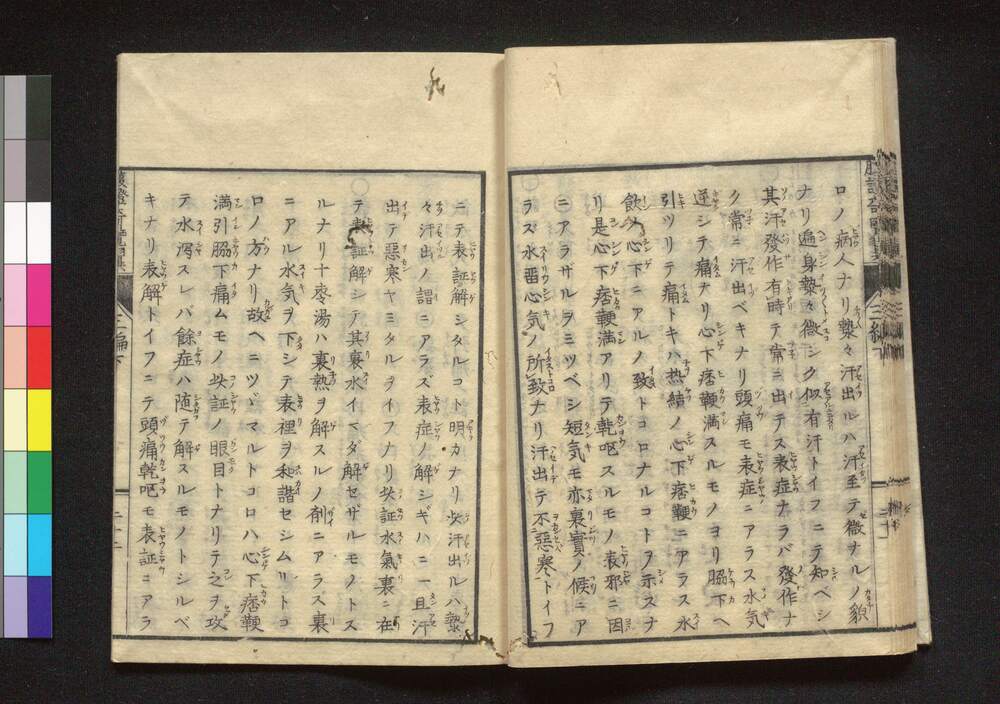 ロノ病人ナリ漐々汗出ルハ汗至テ微ナルノ貌
ナリ遍身漐々微シク似有汗トイフニテ知ベシ
其汗發作有時テ常ニ出テス表症ナラバ發作ナ
ク常ニ汗出ベキナリ頭痛モ表症ニアラス水気
逆シテ痛ナリ心下痞鞕満スルモノヨリ脇下ヘ
引ツリテ痛トキハ熱結ノ心下痞鞕ニアラス水
飲ノ心下ニアルノ致トコロナルコトヲ示スナ
リ是心下痞鞕満アリテ乾呕スルモノ表邪ニ因
ニアラザルヲミツベシ短気モ亦裏實ノ候ニア
ラズ水畜心気ノ所致ナリ汗出テ不惡寒トイフ
ニテ表証解シタルコト明カナリ此汗出ルハ漐
々汗出ノ謂ニアラズ表症ノ解シギハニ一旦汗
出テ惡寒ヤミタルヲイフナリ此証水氣裏ニ在
テ表証解シテ其裏水イマダ解セザルモノトス
ルナリ十枣湯ハ裏熱ヲ解スルノ剤ニアラス裏
ニアル水気ヲ下シテ表裡ヲ和諧セシムルトコ
ロノ方ナリ故ヘニツヾマルトコロハ心下痞鞕
満引脇下痛ムモノ此証ノ眼目トナリテ之ヲ攻
テ水瀉スレバ餘症ハ随テ解スルモノトシルベ
キナリ表解トイフニテ頭痛乾呕モ表証ニアラ